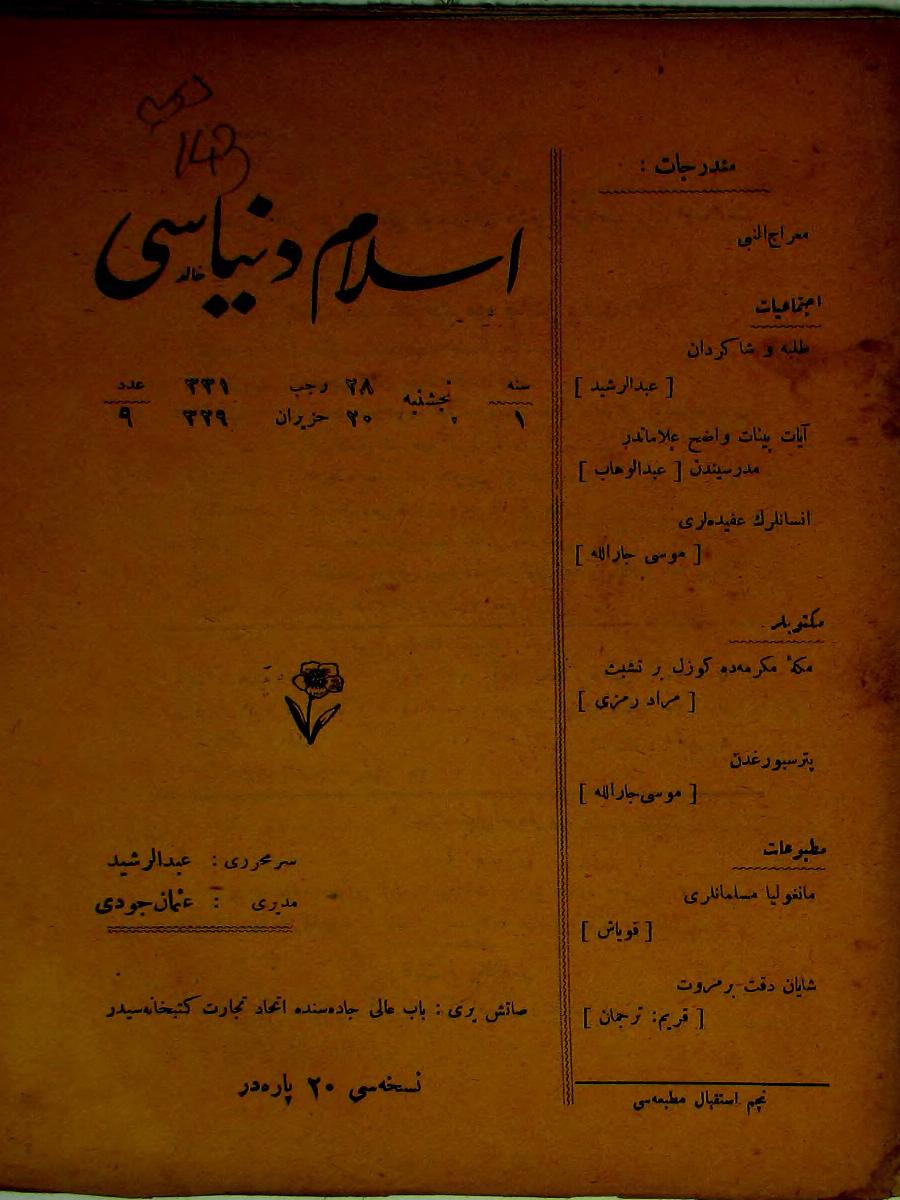 143
اسلام دنیاسی
سنه ۱
پنجشنبه
۲۸ رجب ۳۳۱
۲۰ حزیران ۳۲۹
عدد ۹
مندرجات :
معراج‌النبی
اجتماعیات
طلبه و شاکردان
[ عبدالرشید ]
آیات بینات واضح علاماتدر
مدرسیندن [ عبدالوهاب ]
انسانلرك عقیده‌لری
[ موسی جارالله ]
مکتوبلر
مکهٔ مکرمه‌ده کوزل بر تشبث
[ مراد رمزی ]
پترسبورغدن
[ موسی‌جارالله ]
مطبوعات
مانغولیا مسلمانلری
[ قویاش ]
شایان دقت بر مروت
[ قریم: ترجمان ]
نجم استقبال مطبعه‌سی
سرمحرری : عبدالرشید
مدیری : عثمان جودی
صاتش یری : باب عالی جاده‌سنده اتحاد تجارت کتبخانه‌سیدر
نسخه‌سی ۲۰ پاره‌در